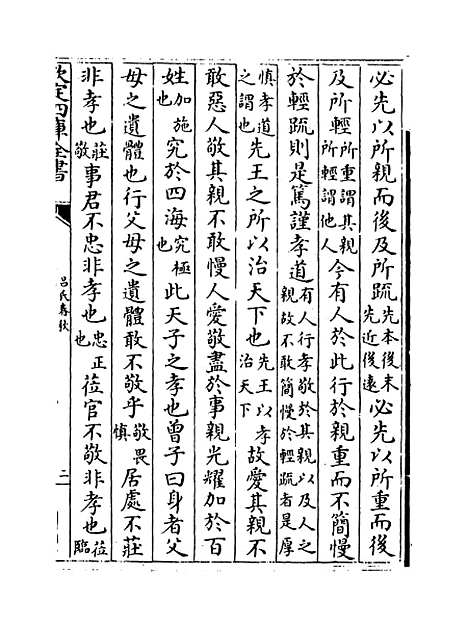 必先以所親而後及所疏先本後末先近後遠必先以所重而後
及所輕所重謂其親所輕謂他人今有人於此行於親重而不簡慢
於輕疏則是篤謹孝道有人行孝敬於其親以及人之親故不敢簡慢於輕疏者是厚
慎孝道之謂也先王之所以治天下也先王以孝治天下故愛其親不
敢惡人敬其親不敢慢人愛敬盡於事親光耀加於百
姓加施也究於四海究極也此天子之孝也曾子曰身者父
母之遺體也行父母之遺體敢不敬乎敬畏慎居處不莊
非孝也莊敬事君不忠非孝也忠正也莅官不敬非孝也莅臨
欽定四庫全書
呂氏春秋
二